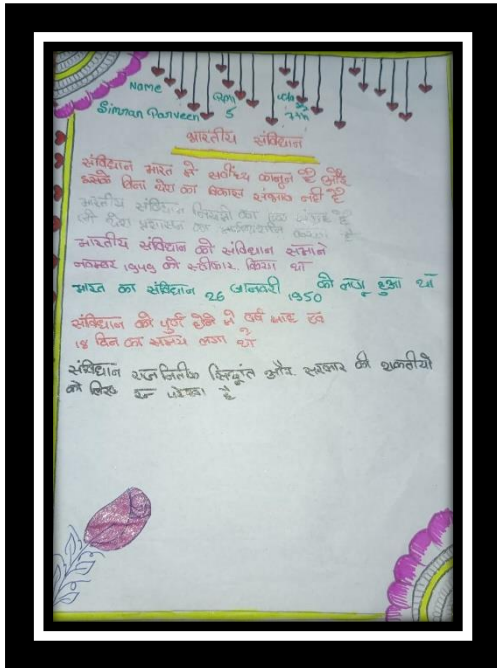 Name Roll class
Simran Parveen 5 7th
भारतीय संविधान
संविधान भारत में सर्वोच्च कानून है और
इसके बिना देश का विकास संभव नहीं है
भारतीय संविधान नियमों का एक संग्रह है
जो प्रशासन का करता है
भारतीय संविधान को संविधान सभाने
नवम्बर 1949 को स्वीकार किया था
भारत का संविधान 26 जनवरी 1950 को लागू हुआ था
संविधान को पुर्ण होने मे वर्ष माह एवं
18 दिन का समय लगा था
संविधान राजनितीक सिद्धांत और सरकार की शक्तीयो
को लिए है